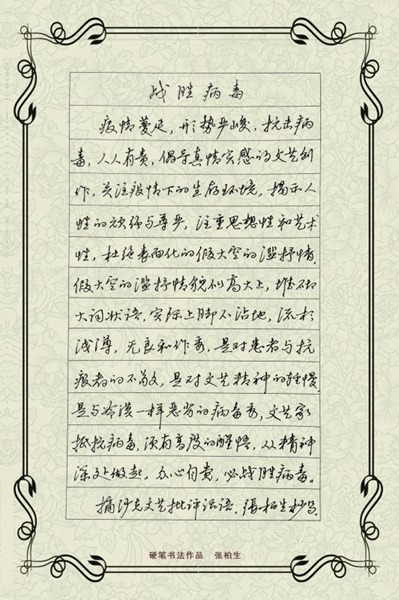 战胜病毒
疫情蔓延，形势严峻，抗击病
毒，人人有责，倡导真情实感的文艺创
作，关注疫情下的生存环境，揭示人
性的顽强与尊严，注重思想性和艺术
性，杜绝表面化的假大空的滥抒情，
假大空的滥抒情貌似高大上，堆砌
大词状语，实际上脚不沾地，流于
浅薄，无良和作秀，是对患者与抗
疫者的不敬，是对文艺精神的轻慢，
是与冷漠一样恶劣的病毒秀，文艺家
抵抗病毒，须有高度的醒悟，从精神
深处做起，众心自责，必战胜病毒。
摘沙克文艺批评话语，张柏生抄写
硬笔书法作品 张柏生